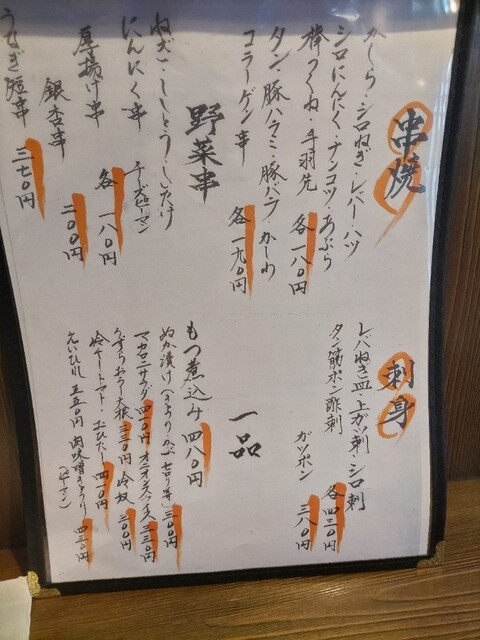 串焼
かしら・シロねぎ・レバー・ハツ
シロにんにく・ナンコツ・あぶら
棒つくね・手羽先 各一八〇円
タン・豚ハラミ・豚バラ・かしわ
コラーゲン串 各一九〇円
野菜串
ねぎ・ししとう・しいたけ
にんにく串 チーズピーマン
各一八〇円
厚揚げ串
銀杏串 二〇〇円
うなぎ短串 三七〇円
刺身
レバねぎ皿・上ガツ刺・シロ刺
タン筋ポン酢刺 各四三〇円
ガツポン 三八〇円
一品
もつ煮込み 四八〇円
ぬか漬け(きゅうり・かぶ・セロリ等)三〇〇円
マカロニサラダ 四一〇円 オニオンスライス 三三〇円
うずらおろし大根 三三〇円 冷奴 三〇〇円
冷やしトマト・おひたし 四一〇円
えいひれ 五五〇円 肉味噌きゅうり 四三〇円
(ピーマン)